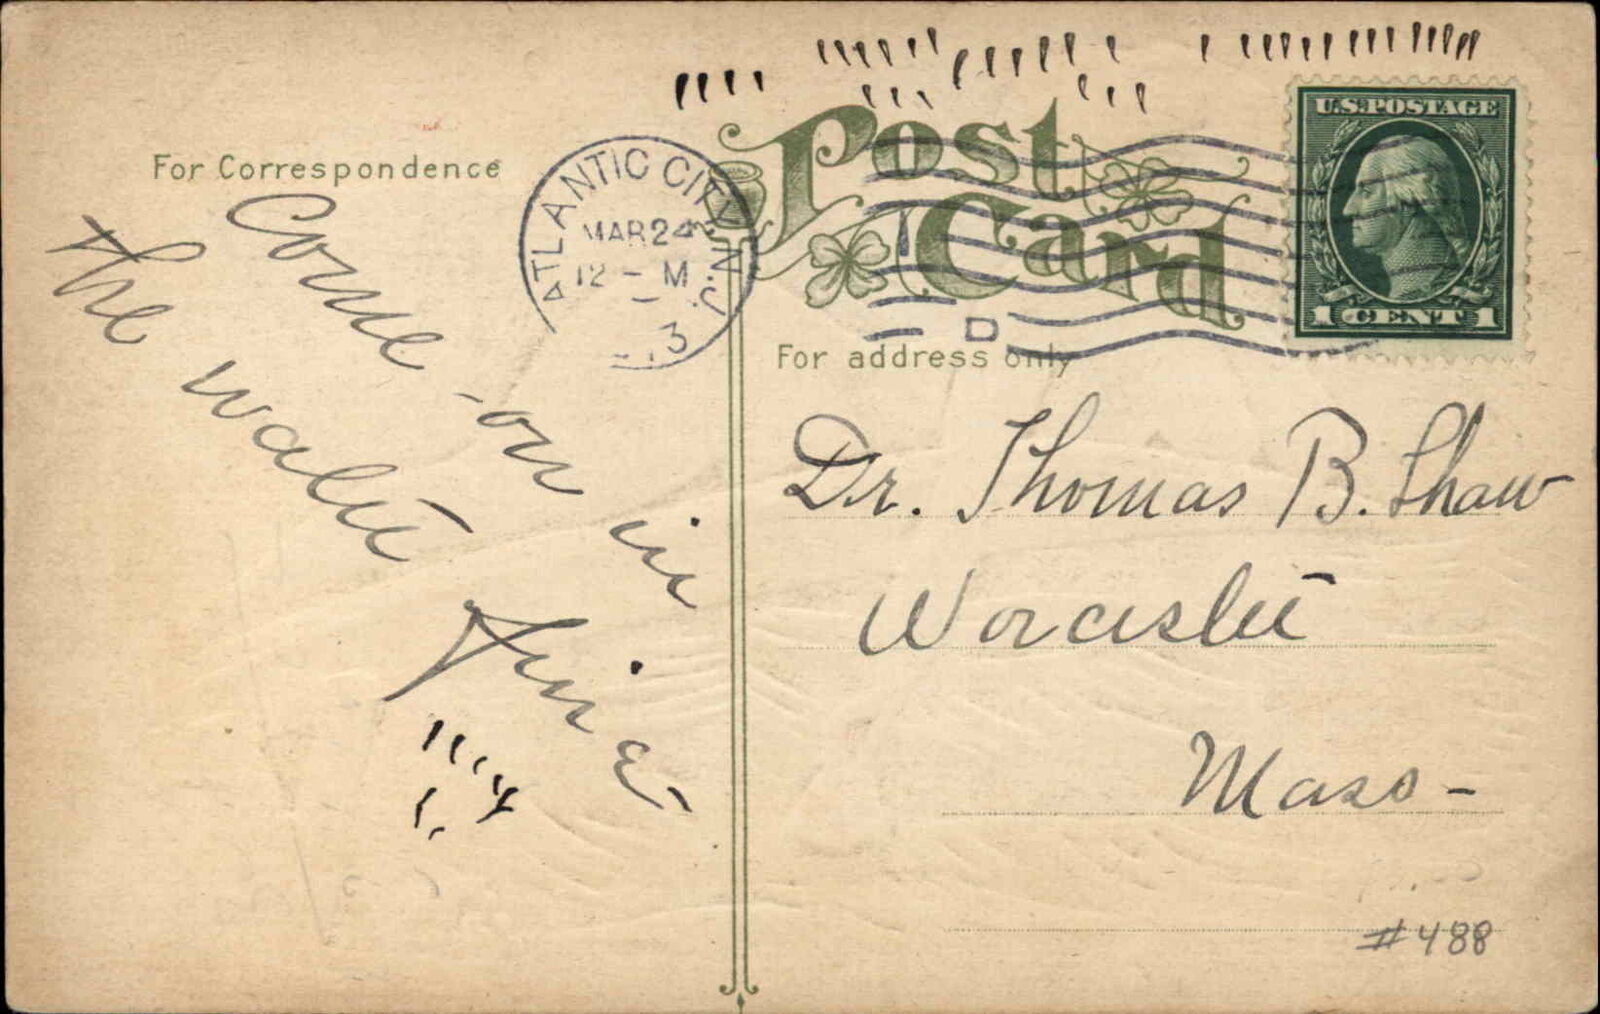 Post
Card
U.S. POSTAGE
1 CENT 1
ATLANTIC CITY N.J.
MAR 24
12 - M
13
D
For Correspondence
For address only
Come on in
the water
fine
Dr. Thomas B. Shaw
Worcester
Mass -
#488